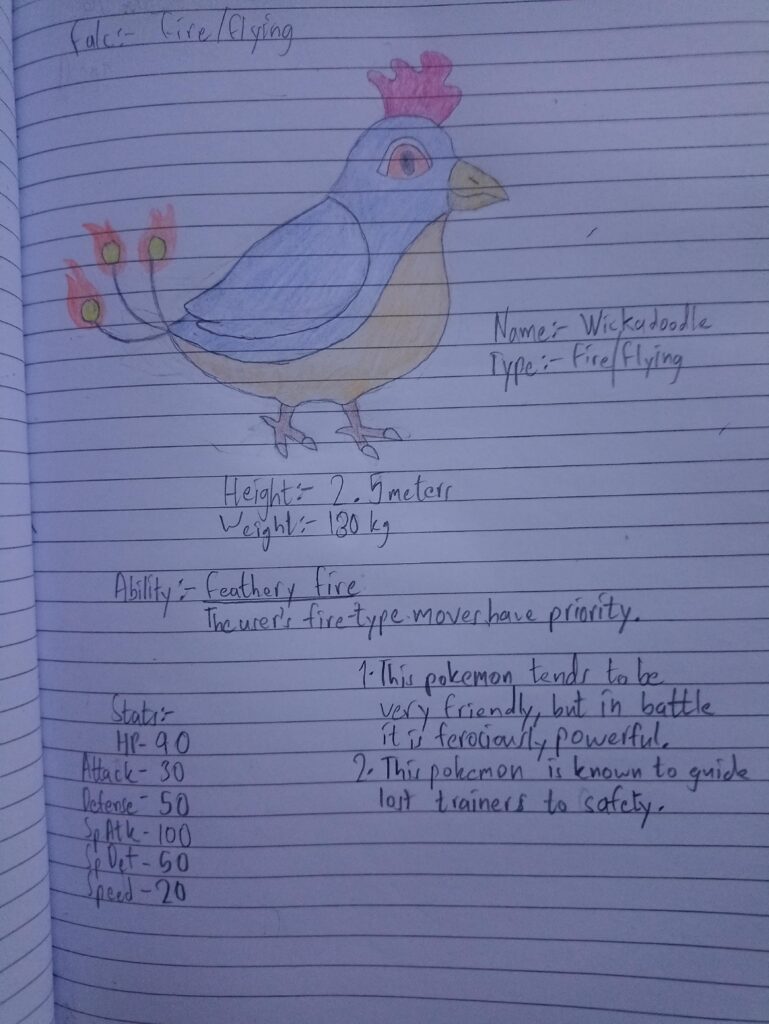 Falc:- Fire/flying
Name:- Wickadoodle
Type:- Fire/flying
Height:- 2.5 meters
Weight:- 130 kg
Ability:- Feathery fire
The user's fire-type moves have priority.
1. This pokemon tends to be
very friendly, but in battle
it is ferociously powerful.
2. This pokemon is known to guide
lost trainers to safety.
Stats:-
HP- 90
Attack- 30
Defense- 50
Sp Atk- 100
Sp Def- 50
Speed- 20